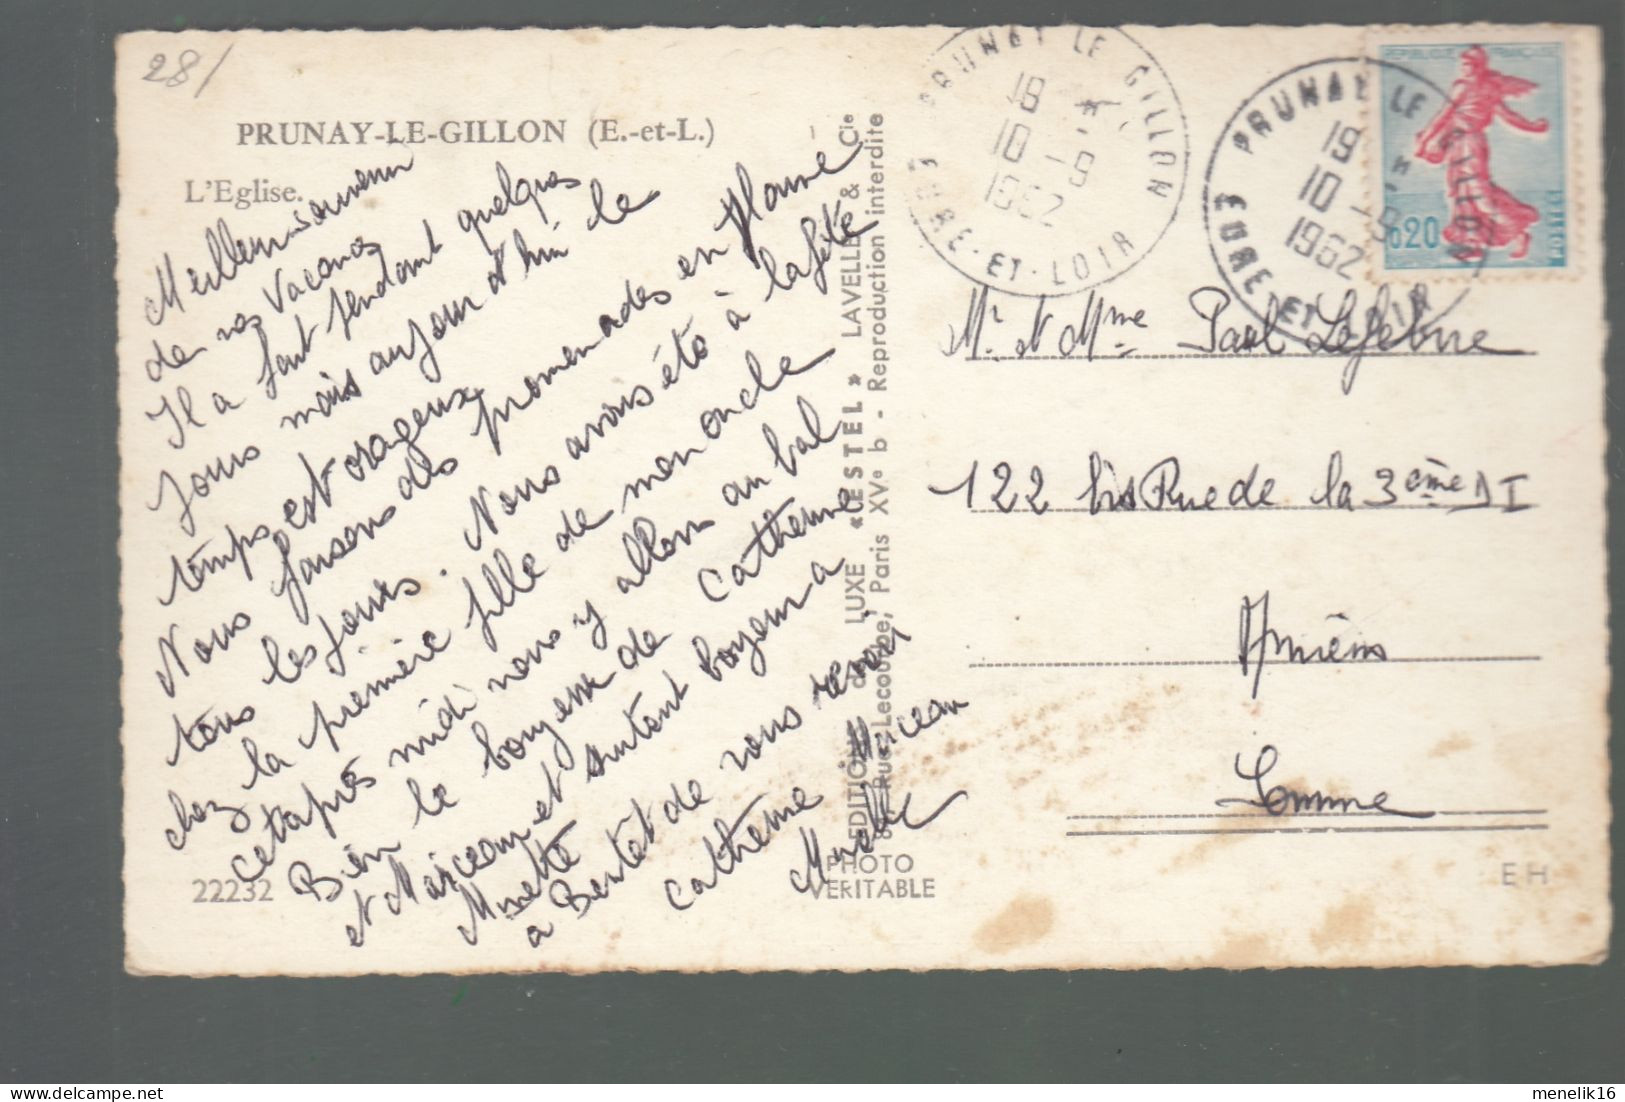 28/
PRUNAY-LE-GILLON (E.-et-L.)
L'Eglise.
Meilleur souvenir
de nos Vacances
Il a fait pendant quelques
jours mais aujourd'hui le
temps est orageux
Nous faisons des promenades en
tous les jours. Nous avons été à la fête
chez la première fille de mon oncle
cet après midi nous y allons au bal
Bien le bonjour de Catherine
et Marceau et surtout bonjour a
Minette
a Bentot de vous revoir
Catherine Marceau
22232
EDITIONS de LUXE «ESTEL» LAVELLE & Cie
8, Rue Lecourbe, Paris XVe b - Reproduction interdite
PHOTO
VERITABLE
PRUNAY LE GILLON
18 H
10 - 9
1962
EURE-ET-LOIR
PRUNAY LE GILLON
19 H
10 - 9
1962
EURE-ET-LOIR
REPUBLIQUE FRANÇAISE
0,20
POSTES
Mr et Mme Paul Lefebvre
122 bis Rue de la 3ème DI
Amiens
Somme
EH
menelik16